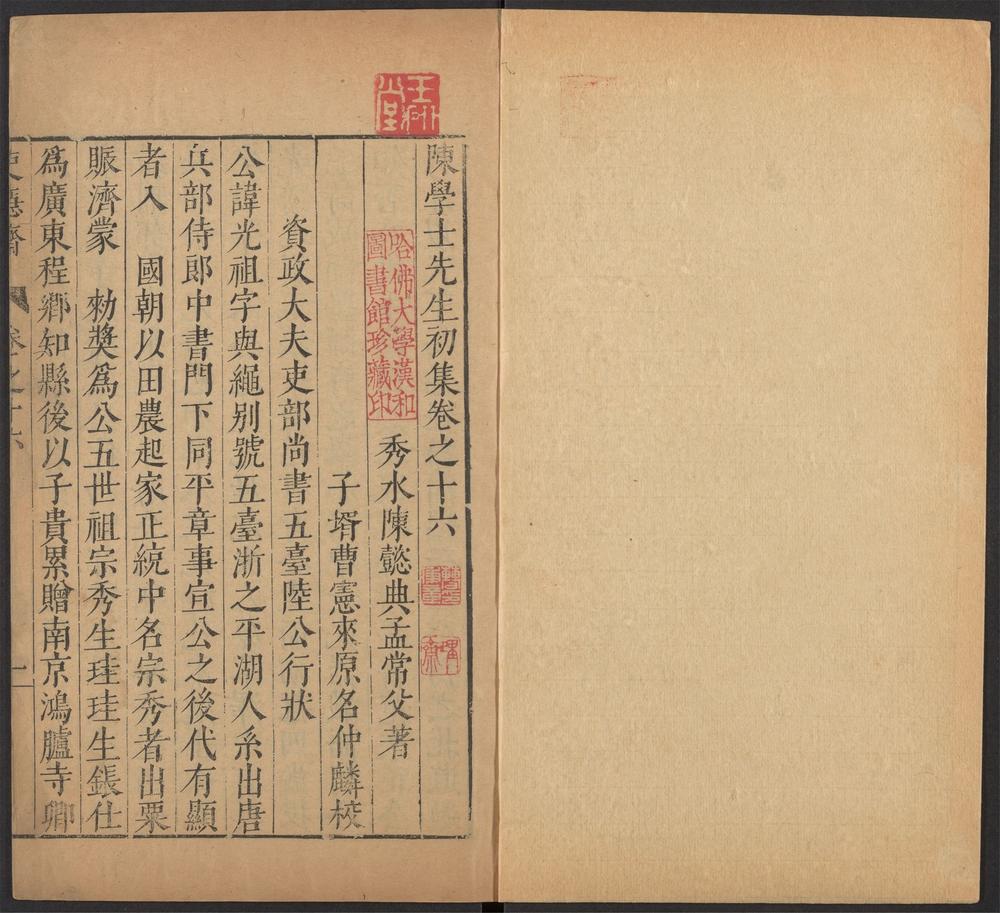 陳學士先生初集卷之十六
秀水陳懿典孟常父著
子壻曹憲來原名仲麟校
資政大夫吏部尚書五臺陸公行狀
公諱光祖字與繩别號五臺浙之平湖人系出唐
兵部侍郎中書門下同平章事宣公之後代有顯
者入　國朝以田農起家正統中名宗秀者出粟
賑濟蒙　勑奬爲公五世祖宗秀生珪珪生鋹仕
爲廣東程鄉知縣後以子貴累贈南京鴻臚寺卿
卷之十六
一
哈佛大學漢和
圖書館珍藏印